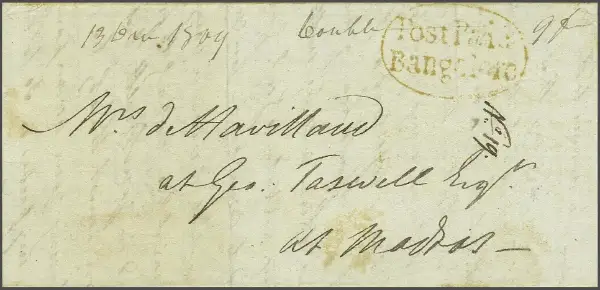 13 Dec 1809 Double 9f
Post Paid
Bangalore
Mrs de Havilland
No. 19.
at Geo. Taswell Esqr.
at Madras —